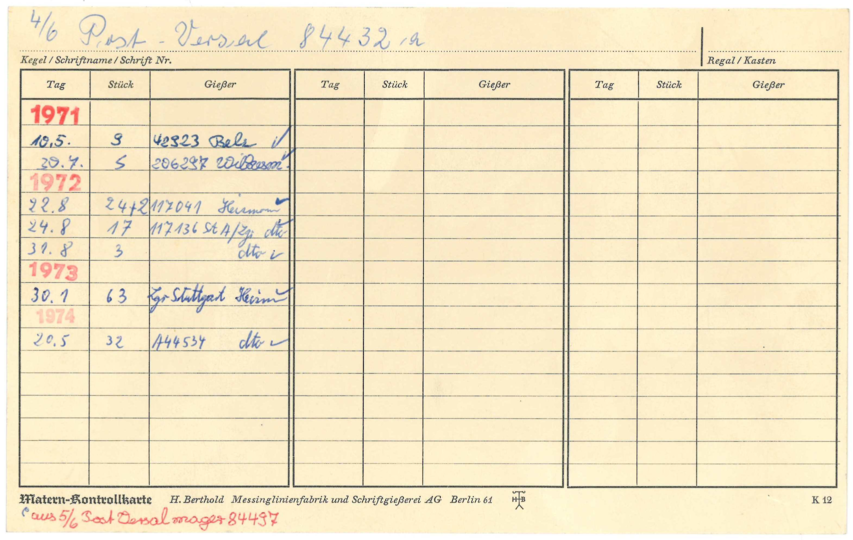 4/6 Post-Versal 84432 a
Kegel / Schriftname / Schrift Nr.
Regal / Kasten
Tag Stück Gießer Tag Stück Gießer Tag Stück Gießer
1971
10.5. 9 42923 ✓
20.7. 5 206297
1972
22.8 24+2 117041 ✓
24.8 17 117136 St A/Zg dto
31.8 3 dto ✓
1973
30.1 63 Zgr Stuttgart ✓
1974
20.5 32 A44534 dto ✓
Matern-Kontrollkarte H. Berthold Messinglinienfabrik und Schriftgießerei AG Berlin 61 H B K 12
aus 5/6 Post Versal mager 84497